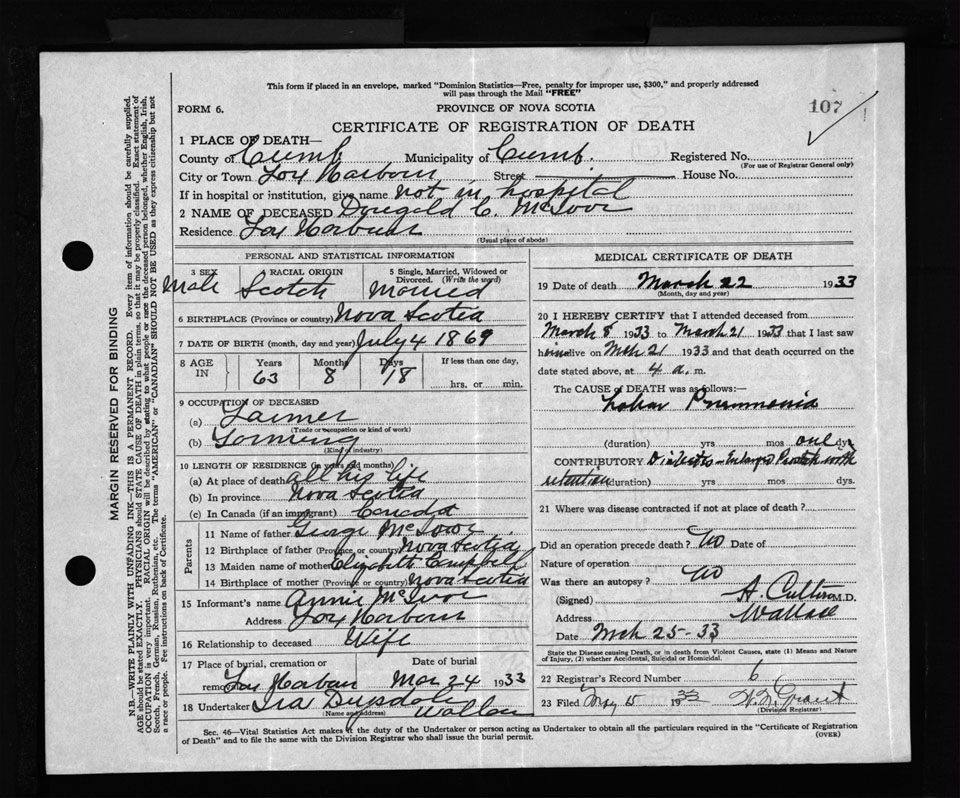 This form if placed in an envelope, marked "Dominion Statistics—Free, penalty for improper use, $300," and properly addressed
will pass through the Mail "FREE"
FORM 6.
PROVINCE OF NOVA SCOTIA
107
CERTIFICATE OF REGISTRATION OF DEATH
1 PLACE OF DEATH—
County of Cumb Municipality of Cumb. Registered No.
(For use of Registrar General only)
City or Town Fox Harbour Street House No.
If in hospital or institution, give name not in hospital
2 NAME OF DECEASED C. McIvor
Residence Fox Harbour
(Usual place of abode)
PERSONAL AND STATISTICAL INFORMATION
3 SEX RACIAL ORIGIN 5 Single, Married, Widowed or Divorced. (Write the word)
Male Scotch Married
6 BIRTHPLACE (Province or country) Nova Scotia
7 DATE OF BIRTH (month, day and year) July 4 1869
8 AGE IN Years Months Days If less than one day,
63 8 18 hrs. or min.
9 OCCUPATION OF DECEASED
(a) Farmer
(Trade or occupation or kind of work)
(b) Farming
(Kind of industry)
10 LENGTH OF RESIDENCE (in years and months)
(a) At place of death all his life
(b) In province Nova Scotia
(c) In Canada (if an immigrant) Canada
Parents
11 Name of father George McIvor
12 Birthplace of father (Province or country) Nova Scotia
13 Maiden name of mother Elizabeth Campbell
14 Birthplace of mother (Province or country) Nova Scotia
15 Informant's name Annie McIvor
Address Fox Harbour
16 Relationship to deceased Wife
17 Place of burial, cremation or removal Date of burial
Fox Harbour Mar 24 1933
18 Undertaker Ira Drysdale
(Name and address) Wallace
MEDICAL CERTIFICATE OF DEATH
19 Date of death March 22 1933
(Month, day and year)
20 I HEREBY CERTIFY that I attended deceased from
March 8 1933 to March 21 1933 that I last saw
him alive on Mch 21 1933 and that death occurred on the
date stated above, at 4 a. m.
The CAUSE OF DEATH was as follows:—
Lobar Pneumonia
(duration) yrs mos one dys
CONTRIBUTORY Diabetes – Enlarged Prostate with
retention (duration) yrs. mos. dys.
21 Where was disease contracted if not at place of death?
Did an operation precede death? No Date of
Nature of operation
Was there an autopsy? No
(Signed) A. M.D.
Address Wallace
Date Mch 25-33
State the Disease causing Death, or in death from Violent Causes, state (1) Means and Nature of Injury, (2) whether Accidental, Suicidal or Homicidal.
22 Registrar's Record Number 6
23 Filed May 15 1933 Grant
(Division Registrar)
Sec. 46—Vital Statistics Act makes it the duty of the Undertaker or person acting as Undertaker to obtain all the particulars required in the "Certificate of Registration
of Death" and to file the same with the Division Registrar who shall issue the burial permit.
(OVER)
MARGIN RESERVED FOR BINDING
N.B.—WRITE PLAINLY WITH UNFADING INK—THIS IS A PERMANENT RECORD. Every item of information should be carefully supplied.
AGE should be stated EXACTLY. PHYSICIANS should STATE CAUSE OF DEATH in plain terms, so that it may be properly classified. Exact statement of
OCCUPATION is very important. RACIAL ORIGIN will be described by stating to what people or race the deceased person belonged, whether English, Irish,
Scotch, French, German, Russian, Ruthenian, etc. The terms "AMERICAN" or "CANADIAN" SHOULD NOT BE USED as they express citizenship but not
a race or people. Fee instructions on back of Certificate.